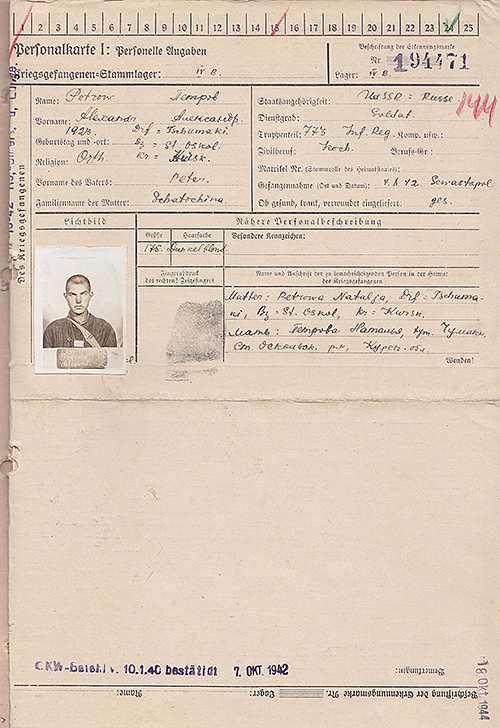 1 2 3 4 5 6 7 8 9 10 11 12 13 14 15 16 17 18 19 20 21 22 23 24 25
Personalkarte I: Personelle Angaben
Kriegsgefangenen-Stammlager: IV B.
Beschriftung der Erkennungsmarke
Nr. 194471
Lager: IV B.
Des Kriegsgefangenen
Name: Petrow Петров
Vorname: Alexandr Александр.
Geburtstag und -ort: 1923. Drf = Tschumaki
Bz = St. Oskol.
Religion: Orth. Kr = Kursk.
Vorname des Vaters: Peter.
Familienname der Mutter: Schatochina.
Staatsangehörigkeit: UdSSR = Russe.
144
Dienstgrad: Soldat.
Truppenteil: 773 Inf. Reg. Komp. usw.:
Zivilberuf: Koch. Berufs-Gr.:
Matrikel Nr. (Stammrolle des Heimatstaates):
Gefangennahme (Ort und Datum): 4.6.42 Sewastopol
Ob gesund, krank, verwundet eingeliefert: ges.
Lichtbild
Nähere Personalbeschreibung
Größe Haarfarbe Besondere Kennzeichen:
175. Dunkelblond
Fingerabdruck
des rechten! Zeigefingers
Name und Anschrift der zu benachrichtigenden Person in der Heimat
des Kriegsgefangenen
Mutter: Petrowa Natalja, Drf = Tschuma-
ki, Bz = St. Oskol, Kr = Kursk.
Мать: Петрова Наталья, хут. Чумаки,
Ст. Оскольск. р-н, Курск. обл.
Wenden!
OKW-Befehl v. 10.1.40 bestätigt 7. OKT. 1942
Bemerkungen:
18. Okt. 1944
Name:
Lager:
Beschriftung der Erkennungsmarke Nr.